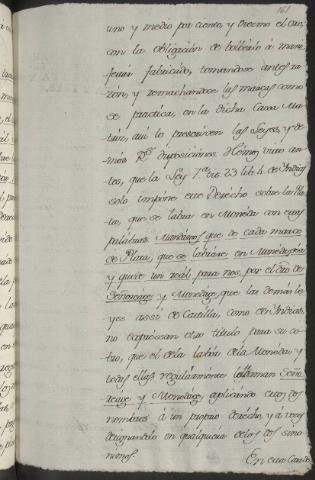 161
uno y medio por ciento, y Diesmo el oro,
con la obligación de bolberlo à mani
festar fabricado, tomandose antes ra
zón, y remachandose las marcas como
se practica, en la dicha Casa Ma
triz, asi lo prescriven las Leyes, y de
más Rs disposiciones. Hemos visto an
tes, que la Ley 7a tit. 23 lib. 4. de Indias
solo impone este Derecho sobre la Pla
ta, que se labra en Moneda con estas
palabras. Mandamos que de cada marco
de Plata, que se labrare en Moneda,
y quede un real para nos, por el dro de
Señoreage, y Monedage, que las demás le
yes assi de Castilla, como de Indias
no expressan otro titulo para su co
bro, que el de la labor de la Moneda, y
todas ellas regularmente lo llaman Seño
reage, y Monedage, aplicando estos dos
nombres à un propio derecho, y à veces
designandolo en qualquiera de los dos sino
nimos.
En estas Casas